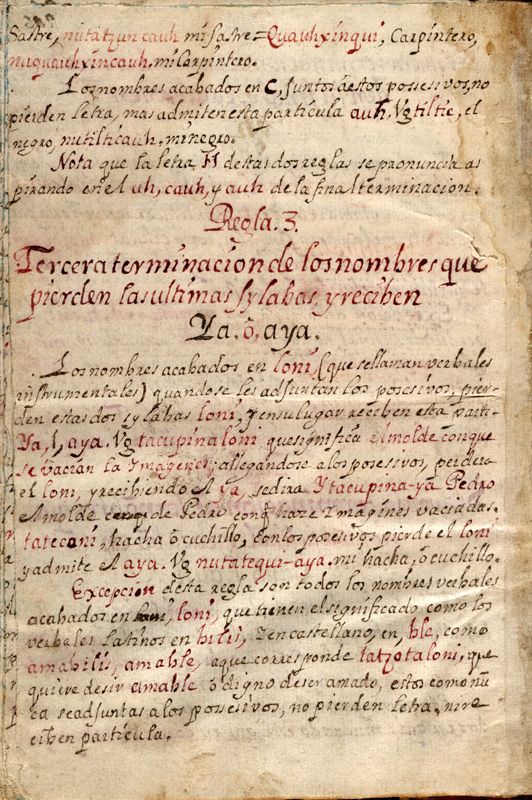 Sastre, nutatzun cauh mi sastre = Quauhxinqui, Carpintero,
nuquauhxincauh, mi Carpintero.
Los nombres acabados en C, juntos â estos possesivos, no
pierden Letra, mas admiten esta partícula auh. Vg tiltic, el
negro, nutilticauh. mi negro.
Nota que la letra H destas dos reglas se pronuncia as
pirando en el uh, cauh, y auh de la final terminacion.
Regla. 3.
Tercera terminacion de los nombres que
pierden las ultimas sylabas, y reciben
Ya. ô, aya.
Los nombres acabados en loni, (que se llaman verbales
instrumentales) quando se les adjuntan los posesivos, pier-
den estas dos sylabas loni, y en su lugar reciben esta parti-
Ya, l, aya. Vg tacupinaloni que significa el molde con que
se vacian la Ymagenes; allegandose a los posesivos, perdera
el loni, y recibiendo el ya, se dira Ytacupina-ya Pedro
el molde de Pedro conq haze Imagines vaciadas.
tateconi, hacha ô cuchillo, con los posesivos pierde el loni
y admite el aya. Vg nutatequi-aya. mi hacha, ô cuchillo.
Excepcion desta regla son todos los nombres verbales
acabados en loni, que tienen el significado como los
verbales Latinos en bilis, I en castellano, en, ble, como
amabilis, amable, aque corresponde tatzotaloni, que
quiere desir amable ô digno de ser amado, estos como nũ
ca se adjuntas a los possesivos, no pierden letra, ni re
ciben partícula.